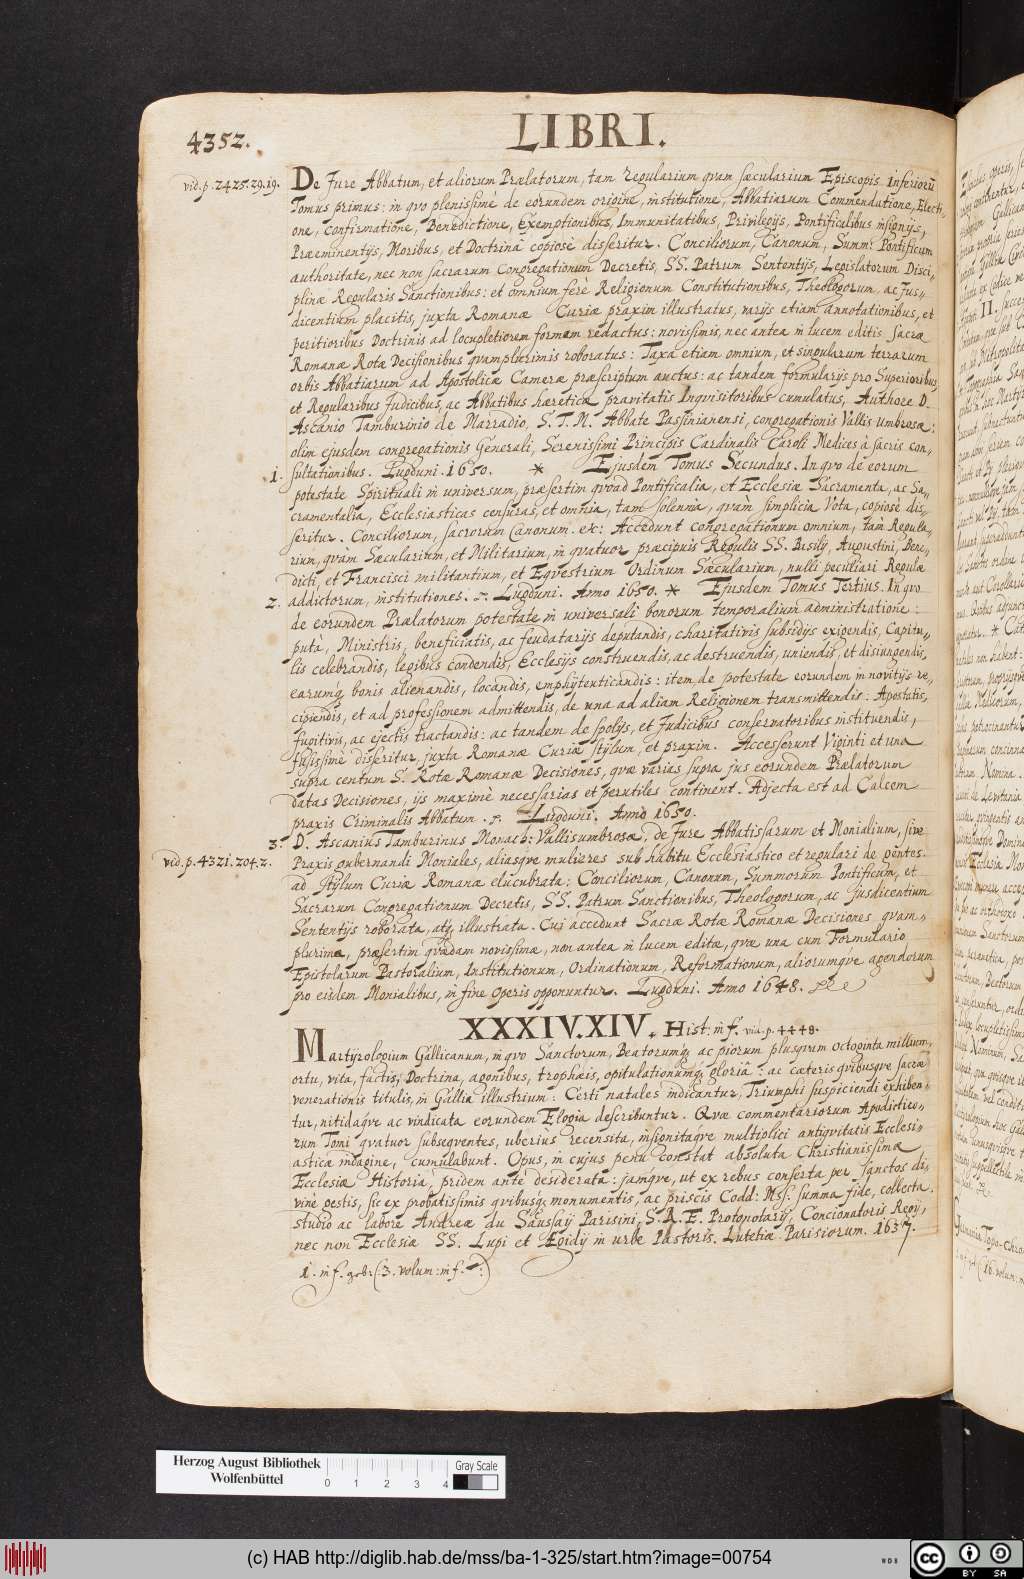 4352.
LIBRI.
vid. p. 2425. 29. 19.
De Jure Abbatum, et aliorum Prælatorum, tam regularium qvam sæcularium Episcopis Inferiorū
Tomus primus: in qvo plenissimè de eorundem origine, institutione, Abbatiarum Commendatione, Electi,,
one, confirmatione, Benedictione, Exemptionibus, Immunitatibus, Privilegijs, Pontificalibus insignijs,
Præeminentijs, Moribus, et Doctrinâ copiosè disseritur. Conciliorum, Canonum, Summ: Pontificum
authoritate, nec non sacrarum Congregationum Decretis, SS. Patrum Sententijs, Legislatorum Disci,,
plinæ Regularis Sanctionibus: et omnium ferè Religionum Constitutionibus, Theologorum, ac Jus,,
dicentium placitis, juxta Romanæ Curiæ praxim illustratus, varijs etiam annotationibus, et
peritioribus Doctrinis ad locupletiorem formam redactus: novissimis, nec antea in lucem editis Sacræ
Romanæ Rotæ Decisionibus qvamplurimis roboratus: Taxâ etiam omnium, et singularum terrarum
orbis Abbatiarum ad Apostolicæ Cameræ præscriptum auctus: ac tandem formularijs pro Superioribus
et Regularibus Judicibus, ac Abbatibus hæreticæ pravitatis Inqvisitoribus cumulatus, Authore D.
Ascanio Tamburinio de Marradio, S. T. M. Abbate Passinianensi, congregationis Vallis Umbrosæ:
olim ejusdem congregationis Generali, Serenissimi Principis Cardinalis Caroli Medices à sacris con,,
1. sultationibus. Lugduni. 1650. * Ejusdem Tomus Secundus. In qvo de eorum
potestate Spirituali in universum, præsertim qvoad Pontificalia, et Ecclesiæ Sacramenta, ac Sa,,
cramentalia, Ecclesiasticas censuras, et omnia, tam solennia, qvam simplicia Vota, copiosè dis,,
seritur. Conciliorum, sacrorum Canonum. ex: Accedunt congregationum omnium, tàm Regula,,
rium, qvàm Sæcularium, et Militarium, in qvatuor præcipuis Regulis SS. Basilij, Augustini, Bene,,
dicti, et Francisci militantium, et Eqvestrium Ordinum Sæcularium, nulli peculiari Regulæ
2. addictorum, institutiones. Lugduni. Anno 1650. * Ejusdem Tomus Tertius. In qvo
de eorundem Prælatorum potestate in universali bonorum temporalium administratione:
putà, Ministris, beneficiatis, ac feudatarijs deputandis, charitativis subsidijs exigendis, Capitu,,
lis celebrandis, legibus condendis, Ecclesijs construendis, ac destruendis, uniendis, et disiungendis,
earumq́; bonis alienandis, locandis, emphÿteuticandis: item de potestate eorundem in novitijs re,,
cipiendis, et ad professionem admittendis, de una ad aliam Religionem transmittendis: Apostatis,
fugitivis, ac ejectis tractandis: ac tandem de spolijs, et Judicibus conservatoribus instituendis,
fusissimè disseritur, juxta Romanæ Curiæ stylum, et praxim. Accesserunt Viginti et una
supra centum S. Rotæ Romanæ Decisiones, qvæ varias supra jus eorundem Prælatorum
datas Decisiones, ijs maximè necessarias et perutiles continent. Adjecta est ad Calcem
praxis Criminalis Abbatum. Lugduni. Anno 1650.
3. D. Ascanius Tamburinus Monach: Vallisumbrosæ, de Jure Abbatissarum et Monialium, sive
vid. p. 4321. 204. 2.
Praxis gubernandi Moniales, aliasqve mulieres sub habitu Ecclesiastico et regulari degentes.
ad stylum Curiæ Romanæ elucubrata: Conciliorum, Canonum, Summorum Pontificum, et
Sacrarum Congregationum Decretis, SS. Patrum Sanctionibus, Theologorum, ac jusdicentium
Sententijs roborata, atq́; illustrata. Cui accedunt Sacræ Rotæ Romanæ Decisiones qvam,,
plurimæ, præsertim qvædam novissimæ, non antea in lucem editæ, qvæ una cum Formulario
Epistolarum Pastoralium, Institutionum, Ordinationum, Reformationum, aliorumqve agendorum
pro eisdem Monialibus, in fine Operis opponuntur. Lugduni. Anno 1648.
XXXIV. XIV. Hist: in f. vid. p. 4448.
Martÿrologium Gallicanum, in qvo Sanctorum, Beatorumq́; ac piorum plusqvam octoginta millium,
ortu, vita, factis, Doctrina, agonibus, trophæis, opitulationumq́; gloriâ: ac cæteris qvibusqve sacræ
venerationis titulis, in Gallia illustrium: Certi natales indicantur, Triumphi suspiciendi exhiben,,
tur, nitidaqve ac vindicata eorundem Elogia describuntur. Qvæ commentariorum Apodictico,,
rum Tomi qvatuor subseqventes, uberius recensita, insignitaqve multiplici antiqvitatis Ecclesi,,
asticæ indagine, cumulabunt. Opus, in cujus penu constat absoluta Christianissimæ
Ecclesiæ Historia, pridem antè desiderata: jamqve, ut ex rebus conserta per sanctos di,,
vinè gestis, sic ex probatissimis qvibusq́; monumentis, ac priscis Codd: Mss. summa fide, collecta.
studio ac labore Andreæ du Saussaÿ Parisini, S. A. E. Protonotarij, Concionatoris Regij,
nec non Ecclesiæ SS. Lupi et Ægidij in urbe Pastoris. Lutetiæ Parisiorum. 1637.
1. in f. geb: (3. volum: in f.)
Herzog August Bibliothek
Wolfenbüttel
0 1 2 3 4
Gray Scale
(c) HAB http://diglib.hab.de/mss/ba-1-325/start.htm?image=00754
WDB
cc BY SA